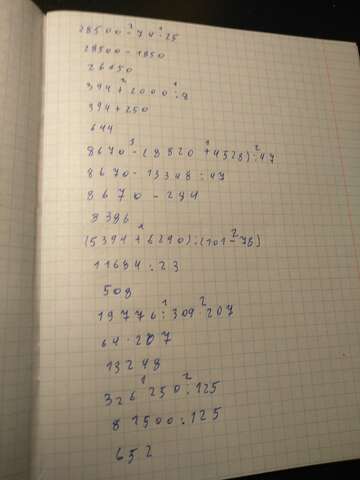 28500-74·25
28500-1850
26650
394+2000:8
394+250
644
8670-(8820+4528):47
8670-13348:47
8670-284
8386
(5394+6290):(101-78)
11684:23
508
19776:309·207
64·207
13248
326·250:125
81500:125
652